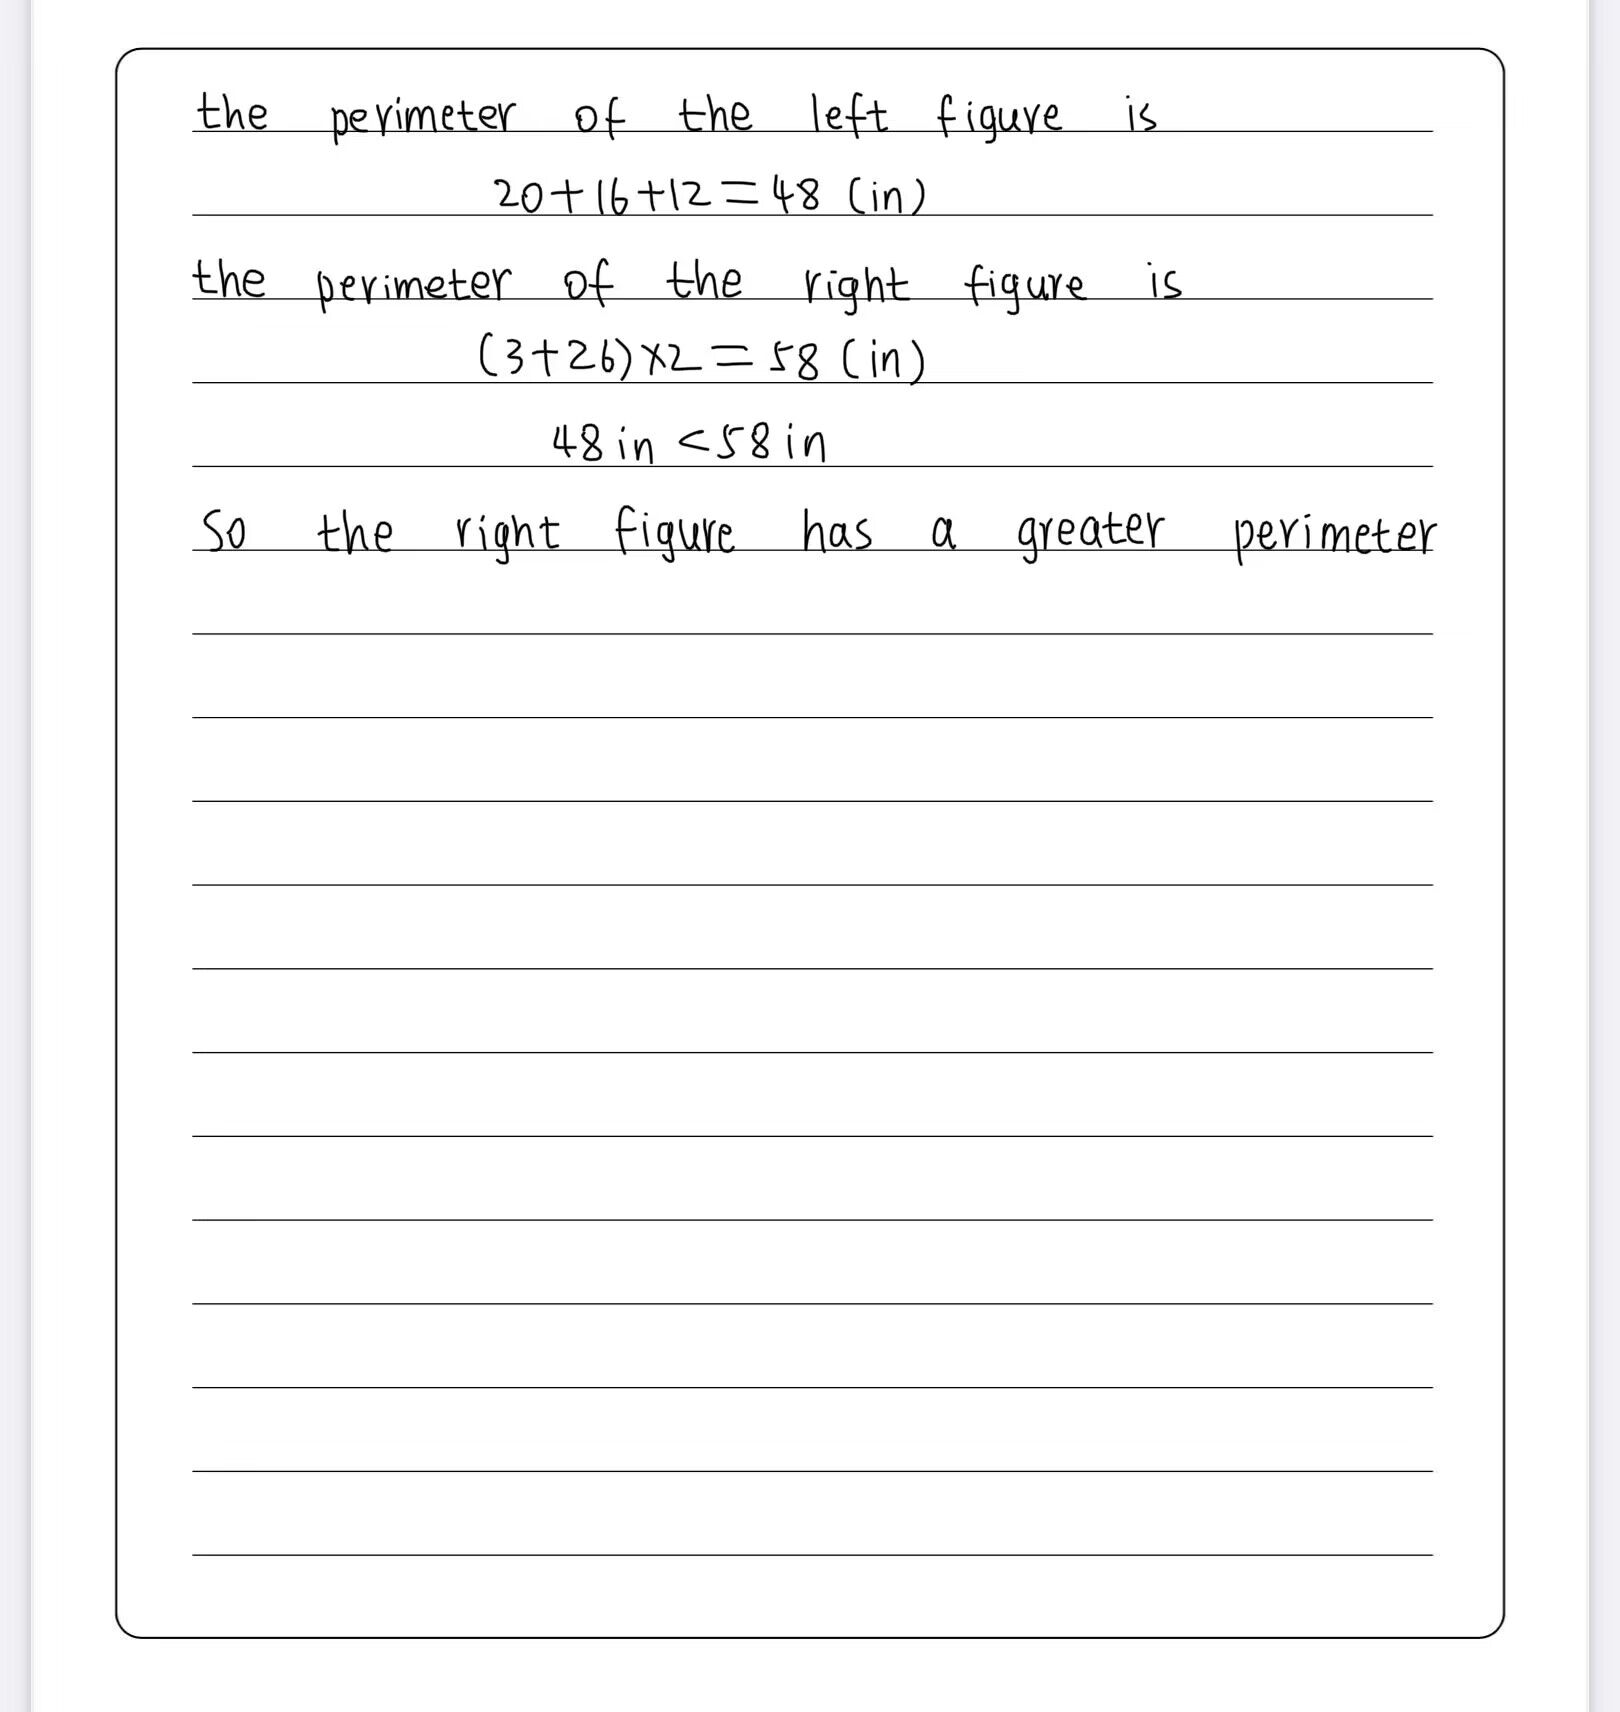 the perimeter of the left figure is
20+16+12=48 (in)
the perimeter of the right figure is
(3+26)×2=58 (in)
48in <58in
So the right figure has a greater perimeter